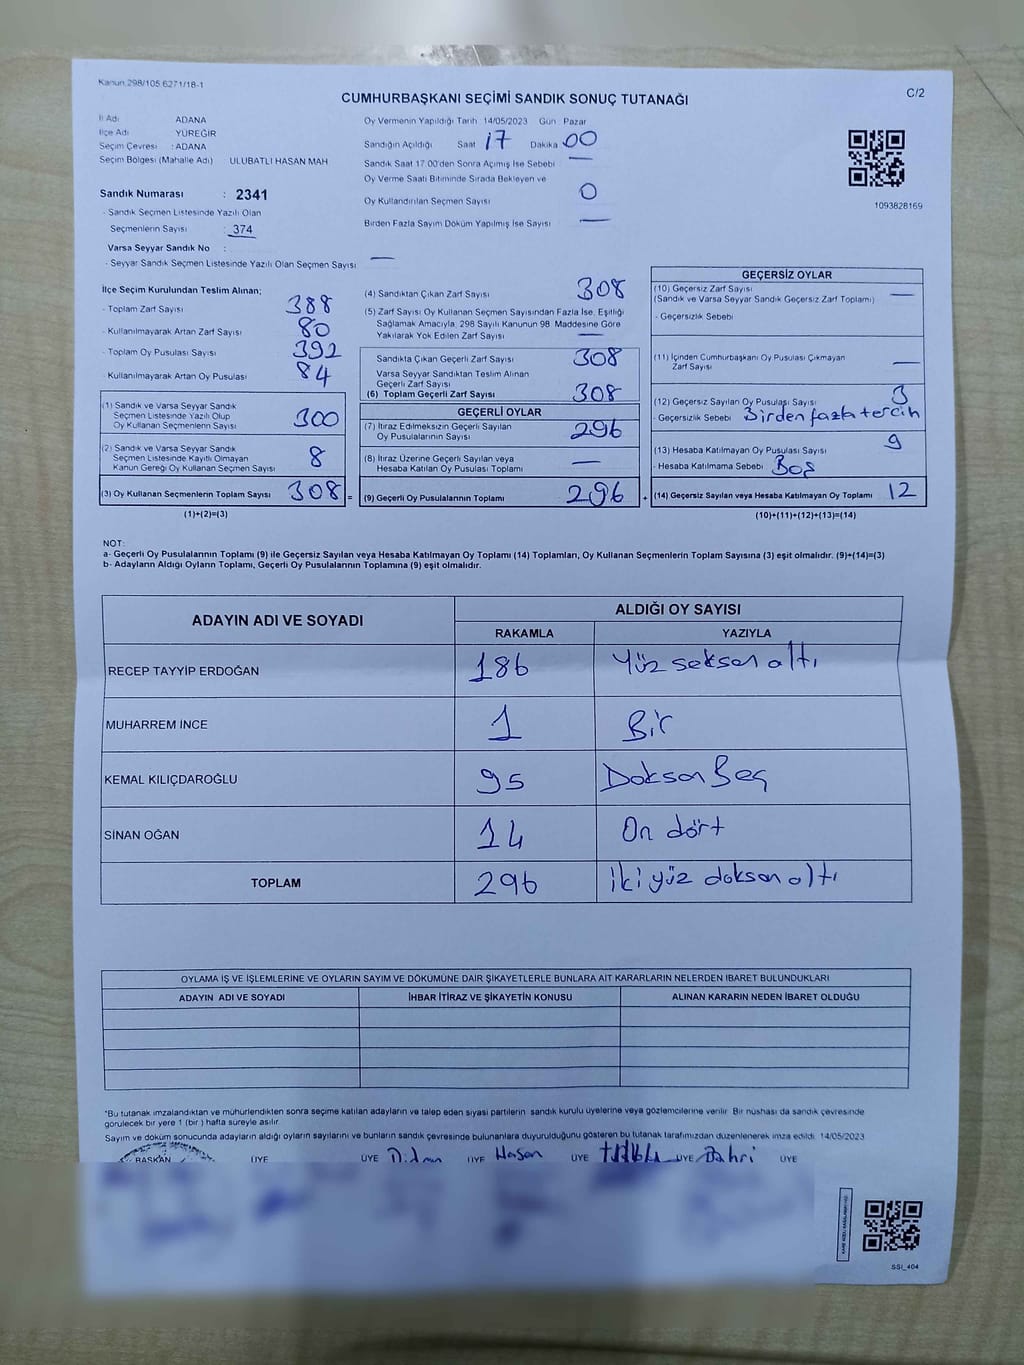 Kanun.298/105.6271/18-1
CUMHURBAŞKANI SEÇİMİ SANDIK SONUÇ TUTANAĞI
C/2
İl Adı ADANA
İlçe Adı YÜREĞİR
Seçim Çevresi : ADANA
Seçim Bölgesi (Mahalle Adı) ULUBATLI HASAN MAH
Sandık Numarası : 2341
- Sandık Seçmen Listesinde Yazılı Olan
Seçmenlerin Sayısı : 374
Varsa Seyyar Sandık No :
- Seyyar Sandık Seçmen Listesinde Yazılı Olan Seçmen Sayısı —
Oy Vermenin Yapıldığı Tarih 14/05/2023 Gün Pazar
Sandığın Açıldığı Saat 17 Dakika 00
Sandık Saat 17.00'den Sonra Açımış İse Sebebi —
Oy Verme Saati Bitiminde Sırada Bekleyen ve
Oy Kullandırılan Seçmen Sayısı 0
Birden Fazla Sayım Döküm Yapılmış İse Sayısı —
1093828169
İlçe Seçim Kurulundan Teslim Alınan;
- Toplam Zarf Sayısı 388
- Kullanılmayarak Artan Zarf Sayısı 80
- Toplam Oy Pusulası Sayısı 392
- Kullanılmayarak Artan Oy Pusulası 84
(1) Sandık ve Varsa Seyyar Sandık
Seçmen Listesinde Yazılı Olup
Oy Kullanan Seçmenlerin Sayısı 300
(2) Sandık ve Varsa Seyyar Sandık
Seçmen Listesinde Kayıtlı Olmayan
Kanun Gereği Oy Kullanan Seçmen Sayısı 8
(3) Oy Kullanan Seçmenlerin Toplam Sayısı 308 =
(1)+(2)=(3)
(4) Sandıktan Çıkan Zarf Sayısı 308
(5) Zarf Sayısı Oy Kullanan Seçmen Sayısından Fazla İse, Eşitliği
Sağlamak Amacıyla, 298 Sayılı Kanunun 98. Maddesine Göre
Yakılarak Yok Edilen Zarf Sayısı —
Sandıkta Çıkan Geçerli Zarf Sayısı 308
Varsa Seyyar Sandıktan Teslim Alınan
Geçerli Zarf Sayısı
(6) Toplam Geçerli Zarf Sayısı 308
GEÇERLİ OYLAR
(7) İtiraz Edilmeksizin Geçerli Sayılan
Oy Pusulalarının Sayısı 296
(8) İtiraz Üzerine Geçerli Sayılan veya
Hesaba Katılan Oy Pusulası Toplamı —
(9) Geçerli Oy Pusulalarının Toplamı 296 +
GEÇERSİZ OYLAR
(10) Geçersiz Zarf Sayısı —
(Sandık ve Varsa Seyyar Sandık Geçersiz Zarf Toplamı)
- Geçersizlik Sebebi
(11) İçinden Cumhurbaşkanı Oy Pusulası Çıkmayan
Zarf Sayısı —
(12) Geçersiz Sayılan Oy Pusulası Sayısı 3
- Geçersizlik Sebebi Birden fazla tercih
(13) Hesaba Katılmayan Oy Pusulası Sayısı 9
- Hesaba Katılmama Sebebi Boş
(14) Geçersiz Sayılan veya Hesaba Katılmayan Oy Toplamı 12
(10)+(11)+(12)+(13)=(14)
NOT:
a- Geçerli Oy Pusulalarının Toplamı (9) ile Geçersiz Sayılan veya Hesaba Katılmayan Oy Toplamı (14) Toplamları, Oy Kullanan Seçmenlerin Toplam Sayısına (3) eşit olmalıdır. (9)+(14)=(3)
b- Adayların Aldığı Oyların Toplamı, Geçerli Oy Pusulalarının Toplamına (9) eşit olmalıdır.
ADAYIN ADI VE SOYADI
ALDIĞI OY SAYISI
RAKAMLA YAZIYLA
RECEP TAYYİP ERDOĞAN 186 Yüz seksen altı
MUHARREM İNCE 1 Bir
KEMAL KILIÇDAROĞLU 95 Doksan Beş
SİNAN OĞAN 14 On dört
TOPLAM 296 iki yüz doksan altı
OYLAMA İŞ VE İŞLEMLERİNE VE OYLARIN SAYIM VE DÖKÜMÜNE DAİR ŞİKAYETLERLE BUNLARA AİT KARARLARIN NELERDEN İBARET BULUNDUKLARI
ADAYIN ADI VE SOYADI İHBAR İTİRAZ VE ŞİKAYETİN KONUSU ALINAN KARARIN NEDEN İBARET OLDUĞU
"Bu tutanak imzalandıktan ve mühürlendikten sonra seçime katılan adayların ve talep eden siyasi partilerin sandık kurulu üyelerine veya gözlemcilerine verilir. Bir nüshası da sandık çevresinde
görülecek bir yere 1 (bir) hafta süreyle asılır.
Sayım ve döküm sonucunda adayların aldığı oyların sayılarını ve bunların sandık çevresinde bulunanlara duyurulduğunu gösteren bu tutanak tarafımızdan düzenlenerek imza edildi. 14/05/2023
BAŞKAN ÜYE ÜYE ÜYE Hasan ÜYE ÜYE Bahri ÜYE
SSI_404